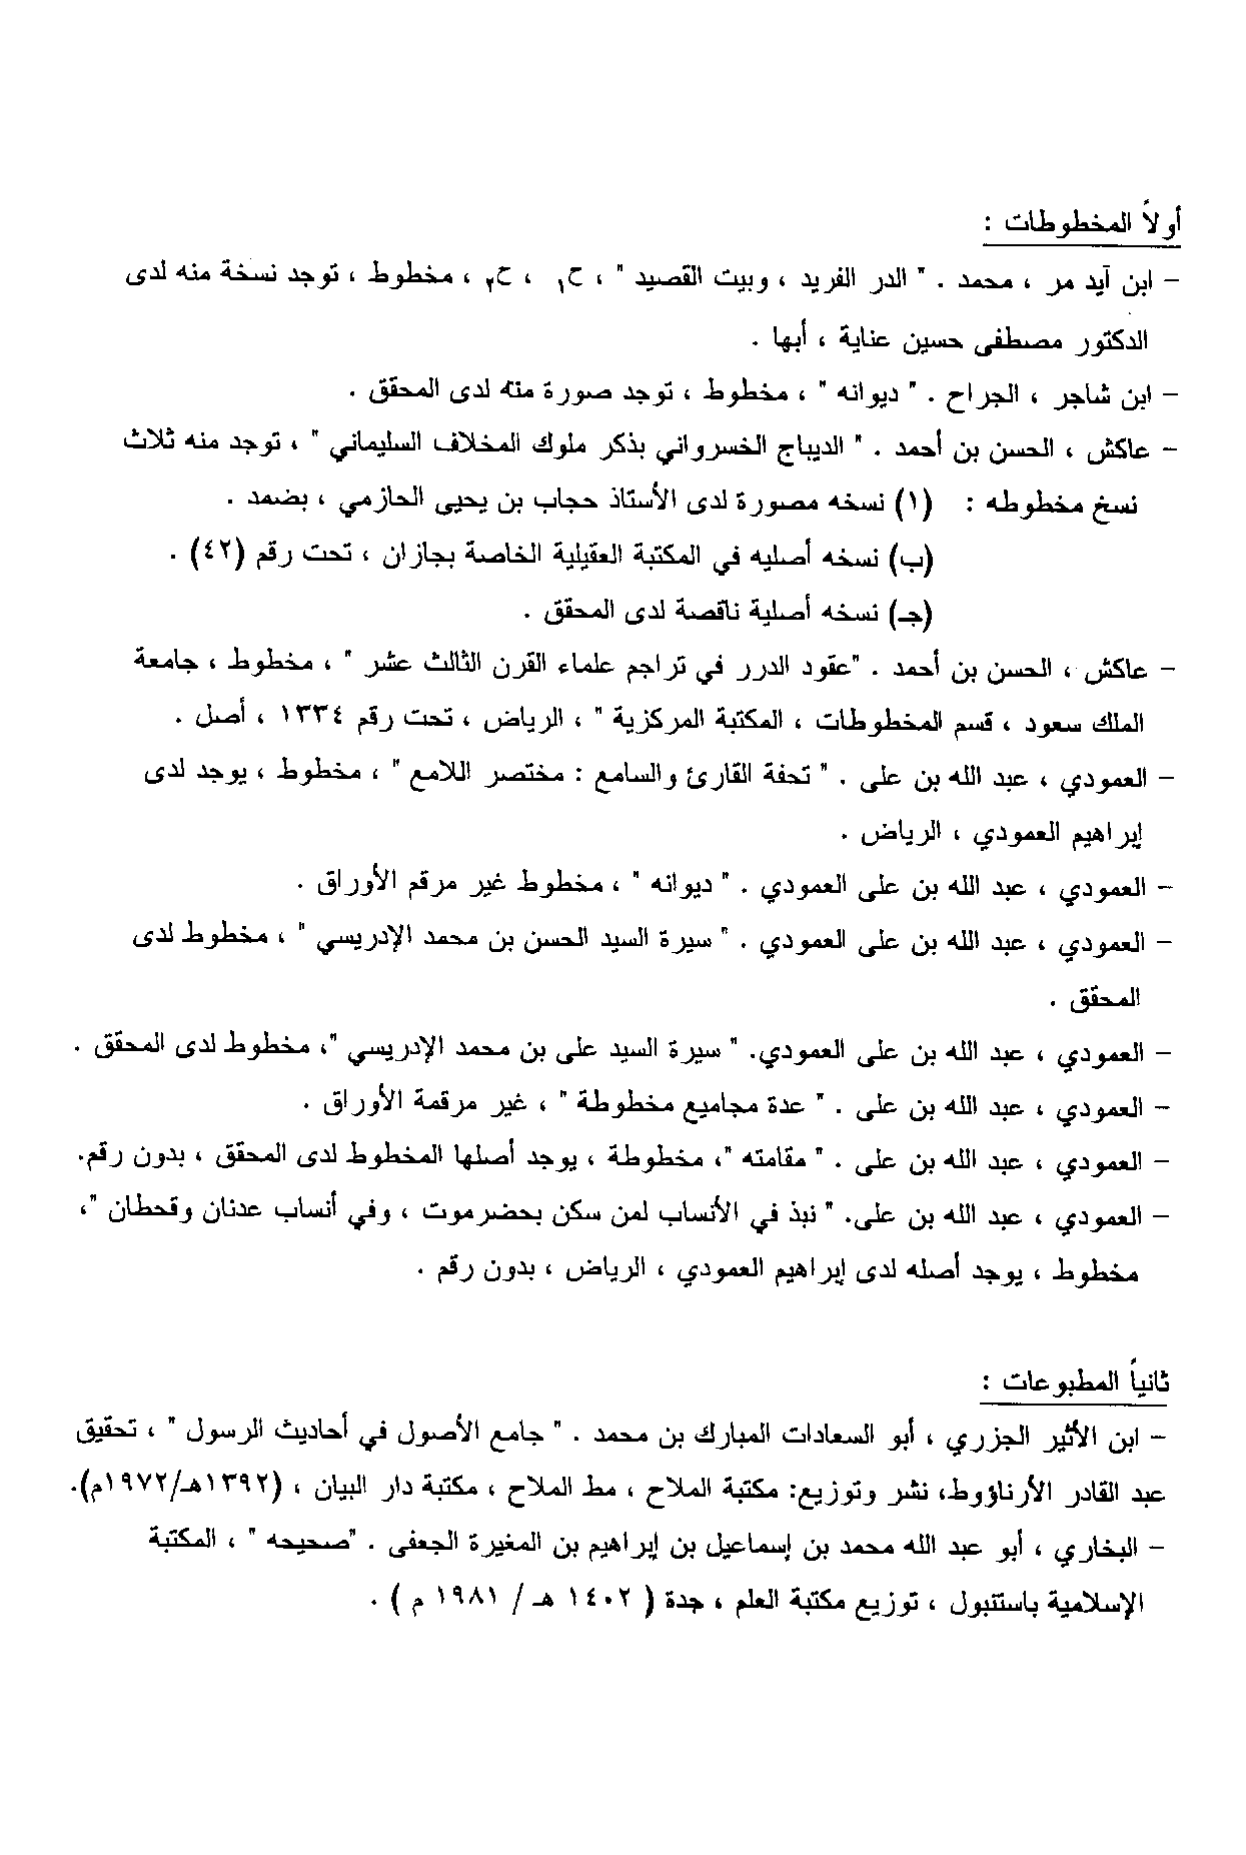 أولاً المخطوطات :
– ابن آيد مر ، محمد . " الدر الفريد ، وبيت القصيد " ، ح١ ، ح٢ ، مخطوط ، توجد نسخة منه لدى
الدكتور مصطفى حسين عناية ، أبها .
– ابن شاجر ، الجراح . " ديوانه " ، مخطوط ، توجد صورة منه لدى المحقق .
– عاكش ، الحسن بن أحمد . " الديباج الخسرواني بذكر ملوك المخلاف السليماني " ، توجد منه ثلاث
نسخ مخطوطه : (١) نسخه مصورة لدى الأستاذ حجاب بن يحيى الحازمي ، بضمد .
(ب) نسخه أصليه في المكتبة العقيلية الخاصة بجازان ، تحت رقم (٤٢) .
(جـ) نسخه أصلية ناقصة لدى المحقق .
– عاكش ، الحسن بن أحمد . "عقود الدرر في تراجم علماء القرن الثالث عشر " ، مخطوط ، جامعة
الملك سعود ، قسم المخطوطات ، المكتبة المركزية " ، الرياض ، تحت رقم ١٣٣٤ ، أصل .
– العمودي ، عبد الله بن على . " تحفة القارئ والسامع : مختصر اللامع " ، مخطوط ، يوجد لدى
إبراهيم العمودي ، الرياض .
– العمودي ، عبد الله بن على العمودي . " ديوانه " ، مخطوط غير مرقم الأوراق .
– العمودي ، عبد الله بن على العمودي . " سيرة السيد الحسن بن محمد الإدريسي " ، مخطوط لدى
المحقق .
– العمودي ، عبد الله بن على العمودي. " سيرة السيد على بن محمد الإدريسي "، مخطوط لدى المحقق .
– العمودي ، عبد الله بن على . " عدة مجاميع مخطوطة " ، غير مرقمة الأوراق .
– العمودي ، عبد الله بن على . " مقامته "، مخطوطة ، يوجد أصلها المخطوط لدى المحقق ، بدون رقم.
– العمودي ، عبد الله بن على. " نبذ في الأنساب لمن سكن بحضرموت ، وفي أنساب عدنان وقحطان "،
مخطوط ، يوجد أصله لدى إبراهيم العمودي ، الرياض ، بدون رقم .
ثانياً المطبوعات :
– ابن الأثير الجزري ، أبو السعادات المبارك بن محمد . " جامع الأصول في أحاديث الرسول " ، تحقيق
عبد القادر الأرناؤوط، نشر وتوزيع: مكتبة الملاح ، مط الملاح ، مكتبة دار البيان ، (١٣٩٢هـ/١٩٧٢م).
– البخاري ، أبو عبد الله محمد بن إسماعيل بن إبراهيم بن المغيرة الجعفى . "صحيحه " ، المكتبة
الإسلامية باستنبول ، توزيع مكتبة العلم ، جدة ( ١٤٠٢ هـ / ١٩٨١ م ) .